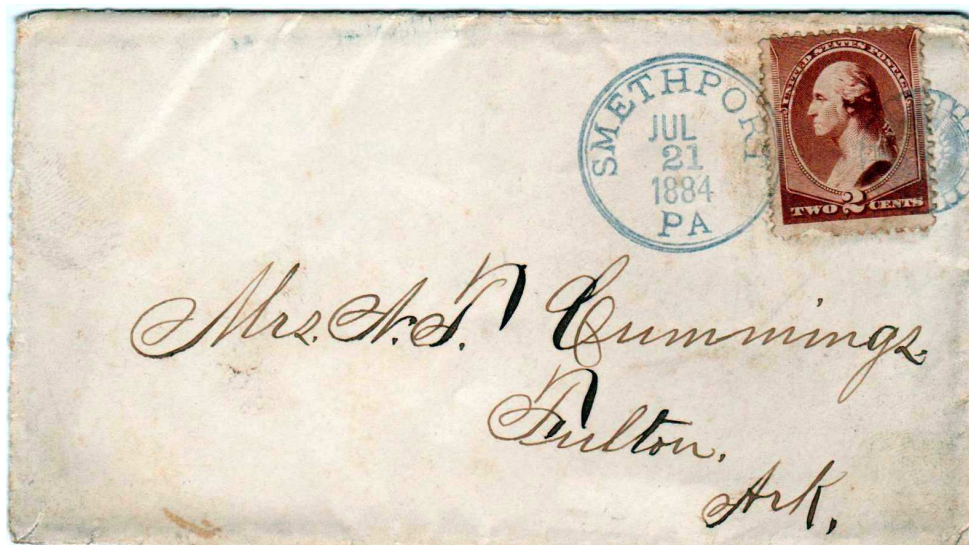 SMETHPORT
JUL
21
1884
PA
UNITED STATES POSTAGE
TWO 2 CENTS
Mrs. N. T. Cummings
Fulton,
Ark,